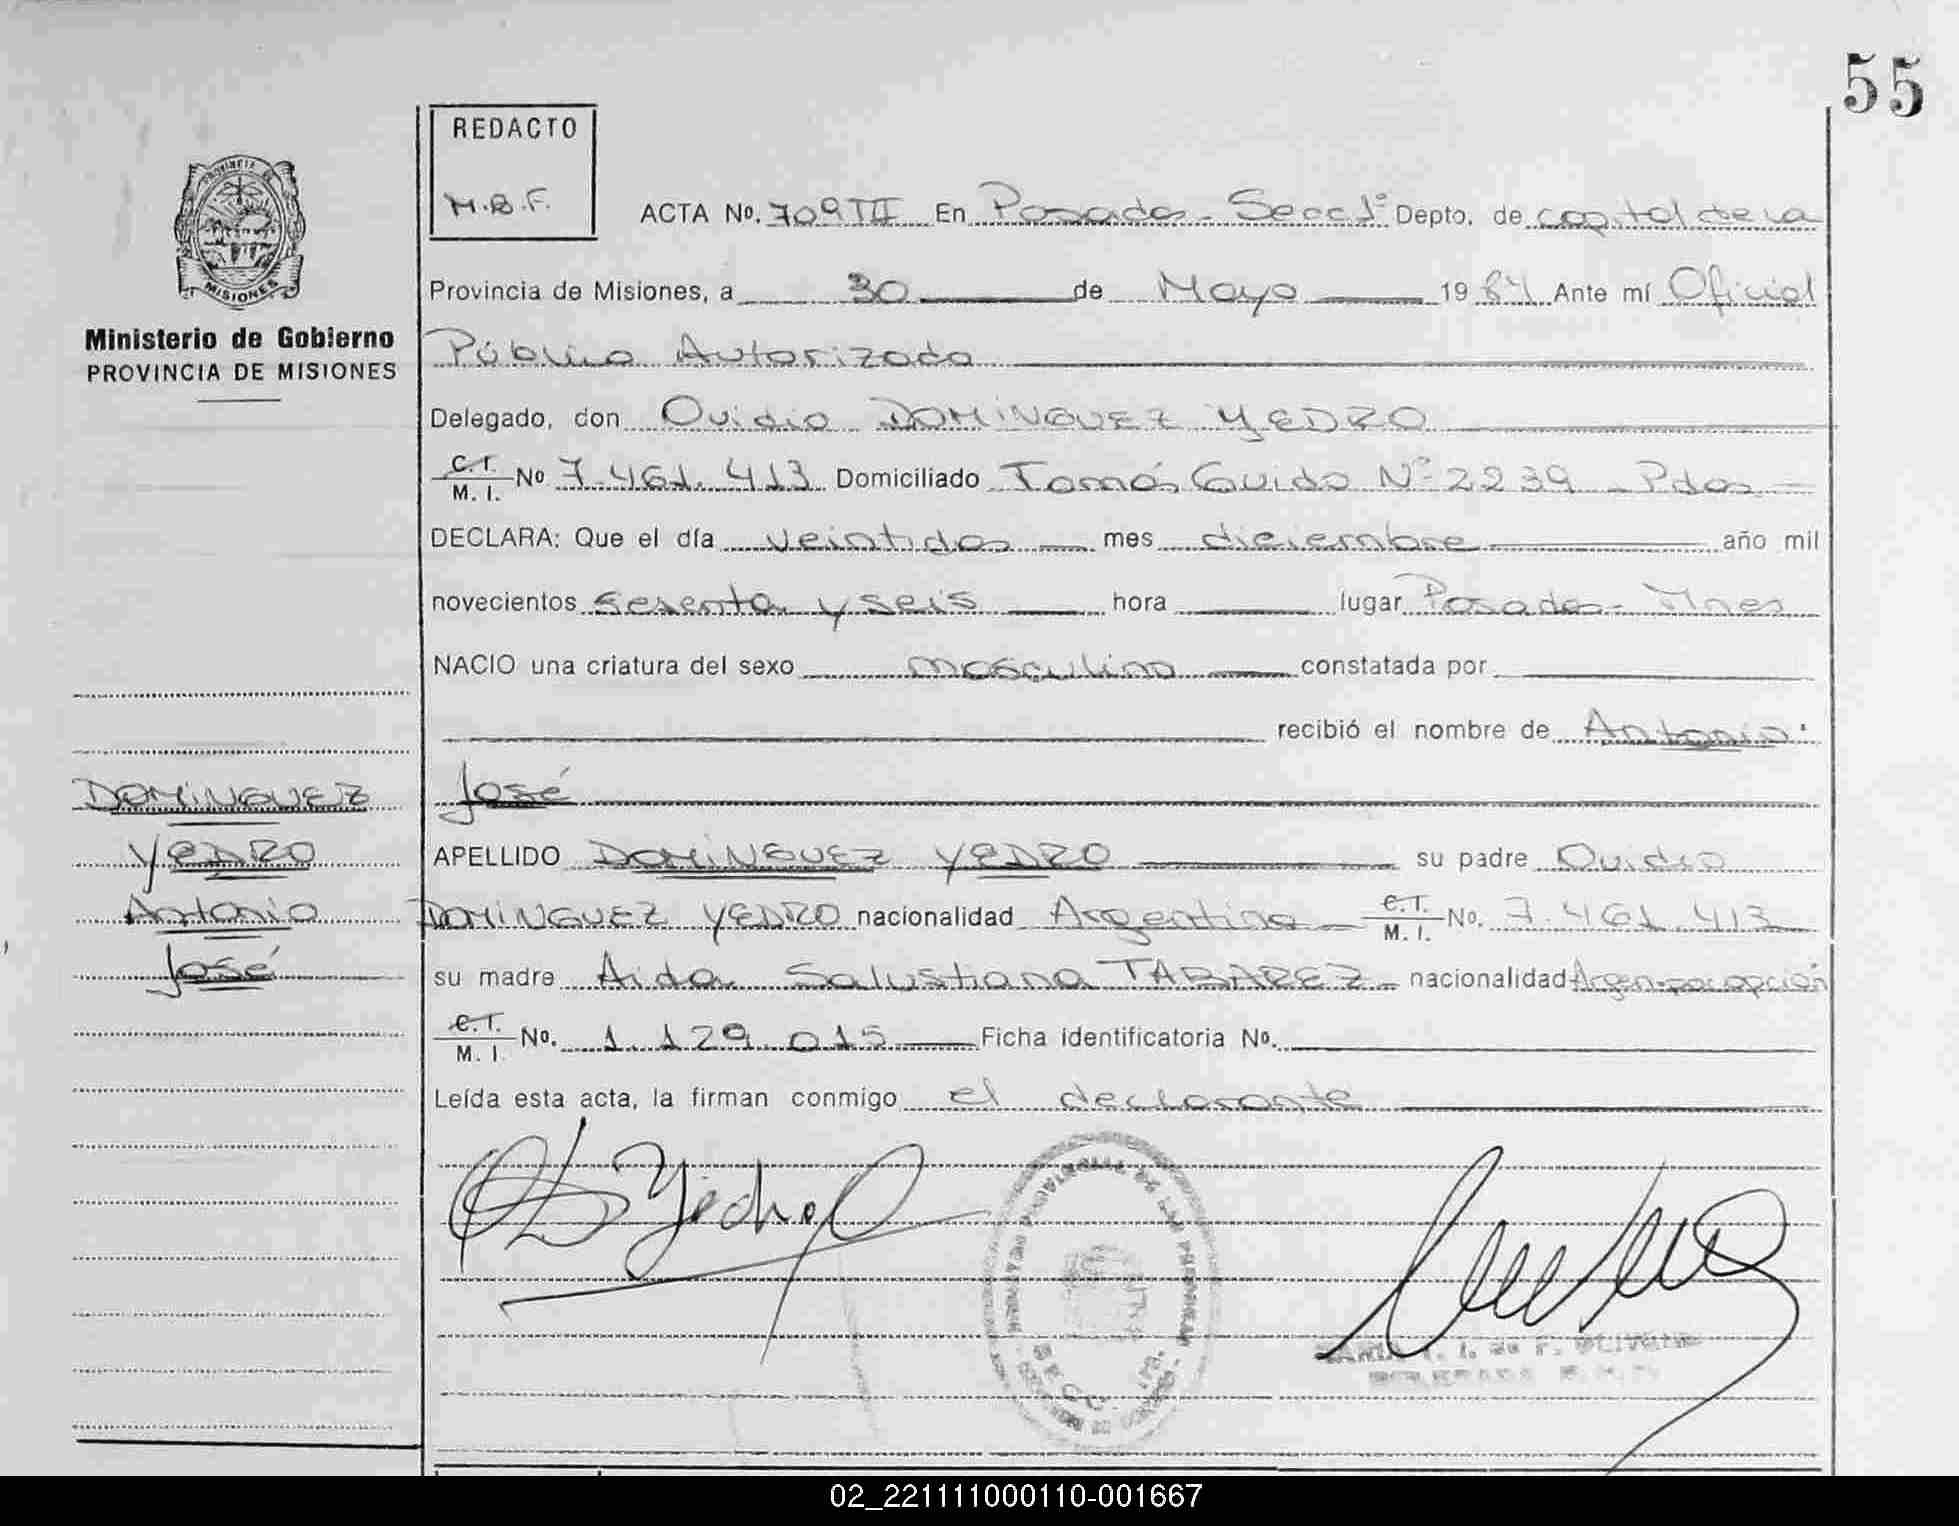 55
REDACTO
M.B.F.
PROVINCIA DE
MISIONES
Ministerio de Gobierno
PROVINCIA DE MISIONES
ACTA No. 709 TII En Posadas - Secc 1° Depto. de capital de la
Provincia de Misiones, a 30 de Mayo 1984 Ante mí Oficial
Público Autorizado
Delegado, don Ovidio DOMINGUEZ YEDRO
C.I. M.I. No 7.461.413 Domiciliado Tomás Guido N° 2239 - Pdas -
DECLARA: Que el día veintidos mes diciembre año mil
novecientos sesenta y seis hora lugar Posadas - Mnes
NACIO una criatura del sexo masculino constatada por
recibió el nombre de Antonio
José
APELLIDO DOMINGUEZ YEDRO su padre Ovidio
DOMINGUEZ YEDRO nacionalidad Argentina C.I. M.I. No. 7.461.413
su madre Aida Salustiana TABAREZ nacionalidad Argen. por opción
C.I. M.I. No. 1.129.015 Ficha identificatoria No.
Leída esta acta, la firman conmigo el declarante
DOMINGUEZ
YEDRO
Antonio
José
02_221111000110-001667